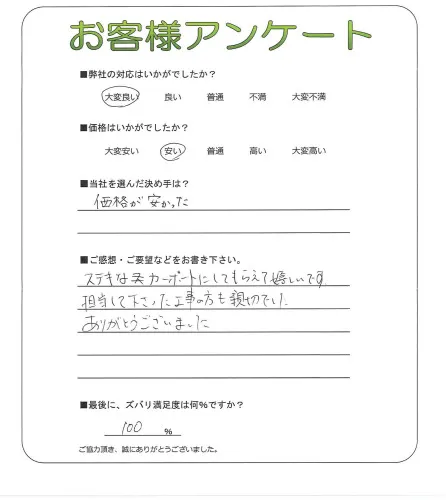 お客様アンケート
■弊社の対応はいかがでしたか?
大変良い 良い 普通 不満 大変不満
■価格はいかがでしたか?
大変安い 安い 普通 高い 大変高い
■当社を選んだ決め手は?
価格が安かった
■ご感想・ご要望などをお書き下さい。
ステキなカーポートにしてもらえて嬉しいです
担当して下さった工事の方も親切でした
ありがとうございました
■最後に、ズバリ満足度は何%ですか?
100 %
ご協力頂き、誠にありがとうございました。